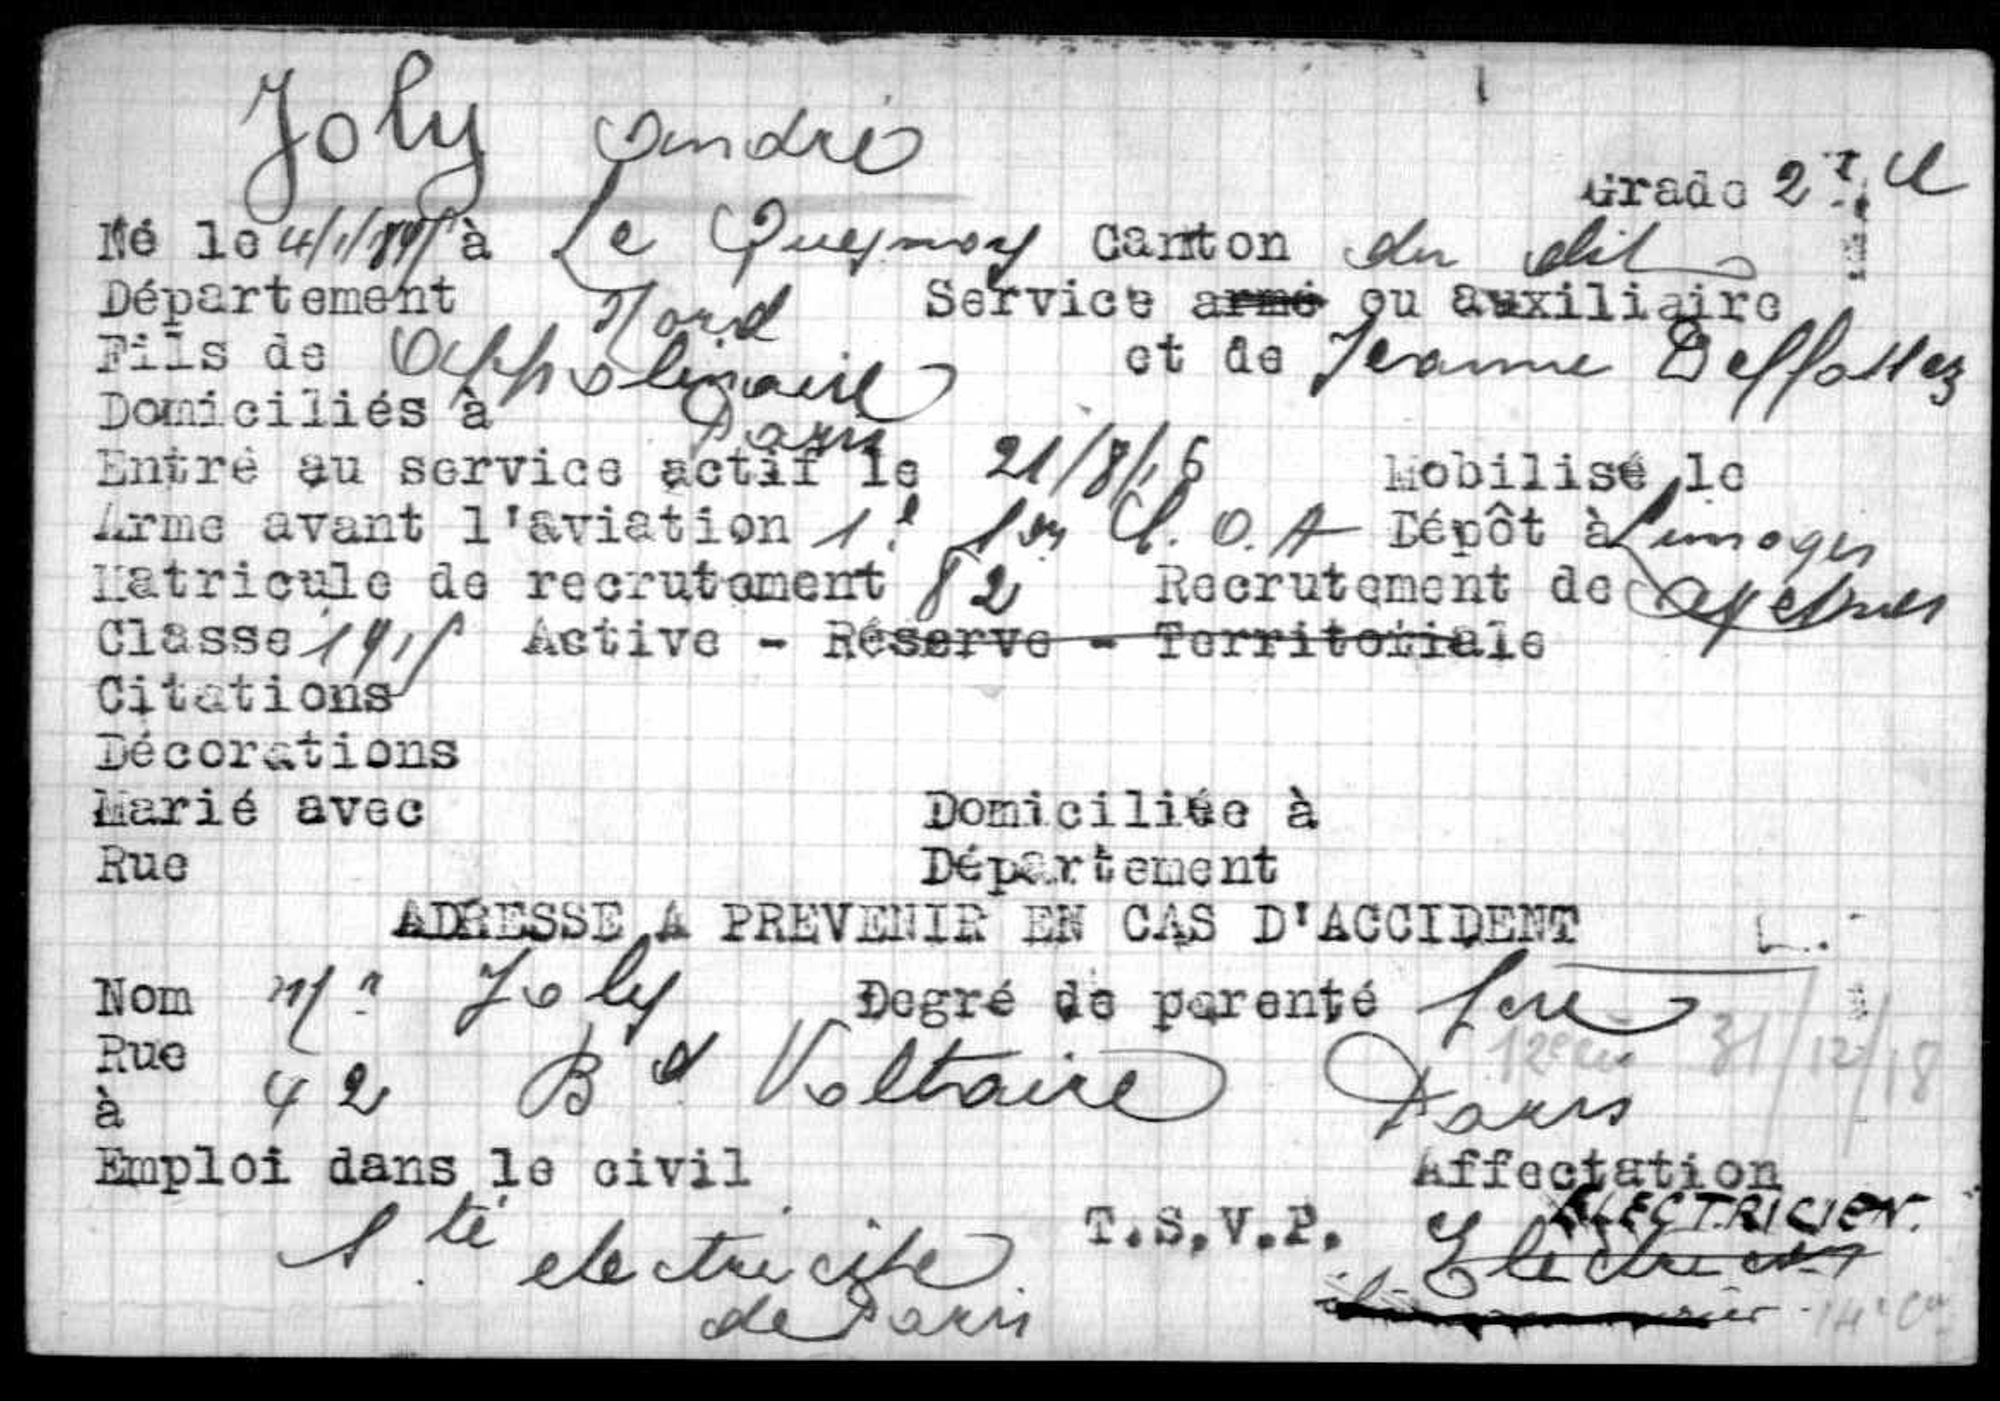 Joly André
Grade 2e Cl
Né le 4/1/1895 à Le Quesnoy Canton du dit
Département Nord Service armé ou auxiliaire
Fils de Appolinaire et de Jeanne Deffossez
Domiciliés à Paris
Entré au service actif le 21/8/16 Mobilisé le
Arme avant l'aviation C.O.A Dépôt à Limoges
Matricule de recrutement 82 Recrutement de Avesnes
Classe 1915 Active - Réserve - Territoriale
Citations
Décorations
Marié avec Domiciliée à
Rue Département
ADRESSE A PREVENIR EN CAS D'ACCIDENT
Nom Mr Joly Degré de parenté Père
12e Cie 31/12/18
Rue 42 Bd Voltaire Paris
à
Emploi dans le civil Affectation
Sté electricité T.S.V.P. ELECTRICIEN.
de Paris Electricien
14e Cie